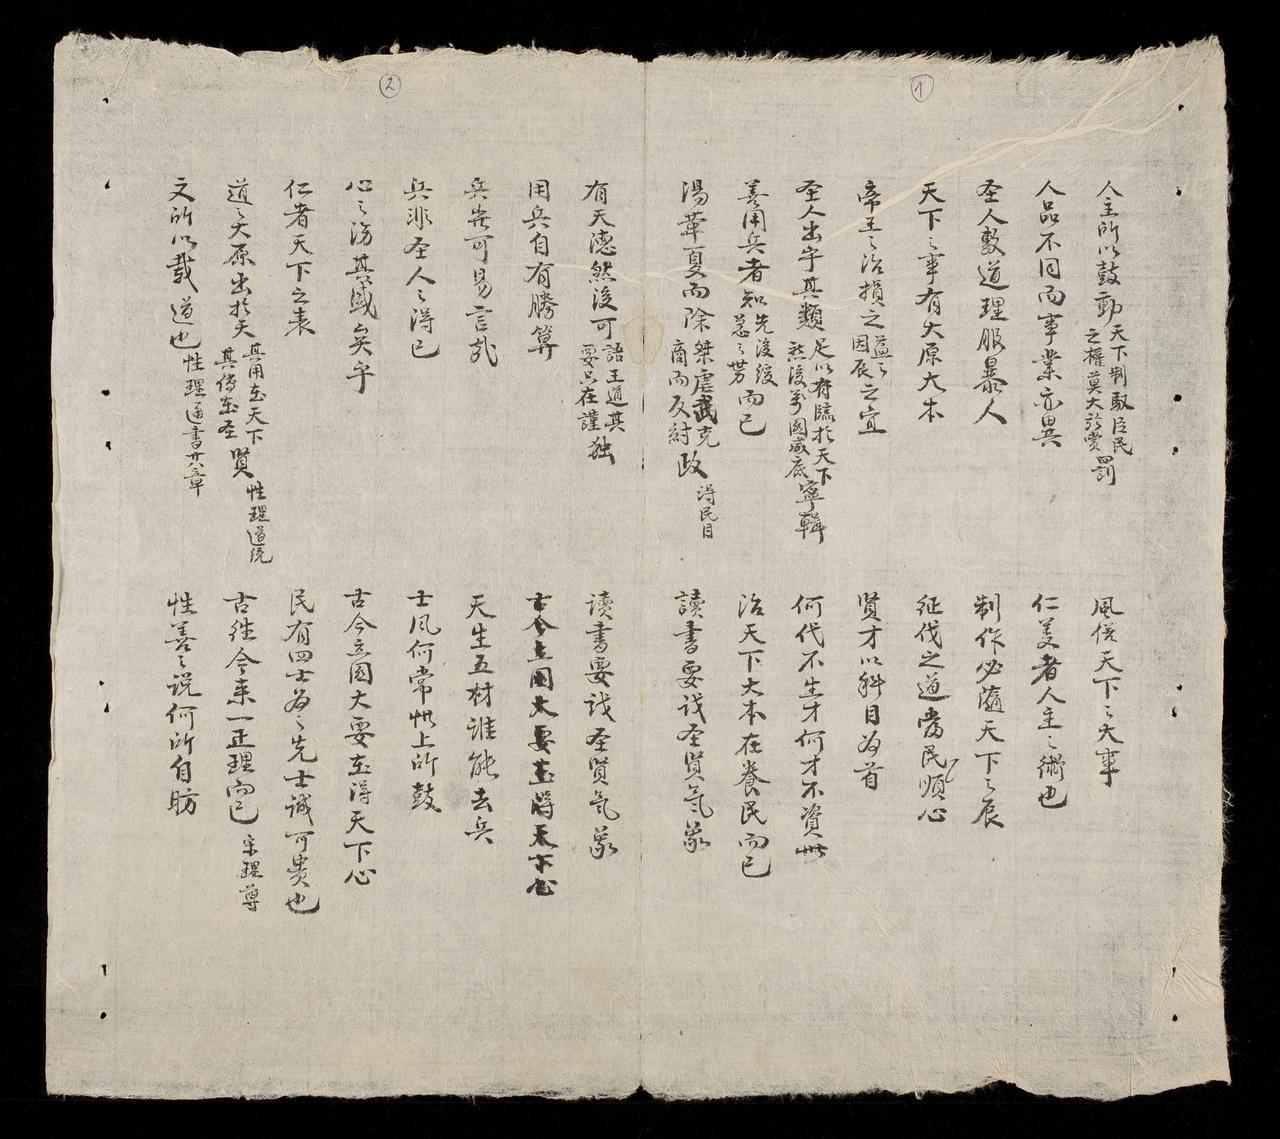 1
人主所以鼓動天下制馭臣民之權莫大於賞罰
人品不同而事業亦異
圣人敷道理服暴人
天下〻事有大原大本
帝王〻治損之益〻因辰之宜
圣人出宇其類足以有臨於天下然後萬國咸底寧輯
善用兵者知先後緩急〻勢而已
湯華夏而除桀虐武克商而反紂政 得民目
風俗天下〻大事
仁義者人主〻術也
制作必隨天下〻辰
征伐之道當民順心
賢才以科目為首
何代不生才何才不資世
治天下大本在養民而已
讀書要識圣賢氣象
2
有天德然後可語王道其要只在謹独
用兵自有勝算
兵豈可易言哉
兵非圣人〻得已
心〻汸其國矣乎
仁者天下之表
道〻大原出於天其用在天下其傳在圣賢 性理道统
文所以載道也 性理通書廿八章
读書要识圣贤氣象
古今立国大要在得天下心
天生五材谁能去兵
士风何常世上所鼓
古今立国大要在得天下心
民有四士為〻先士诚可贵也
古往今来一正理而已 宋理尊
性善〻说何所自昉